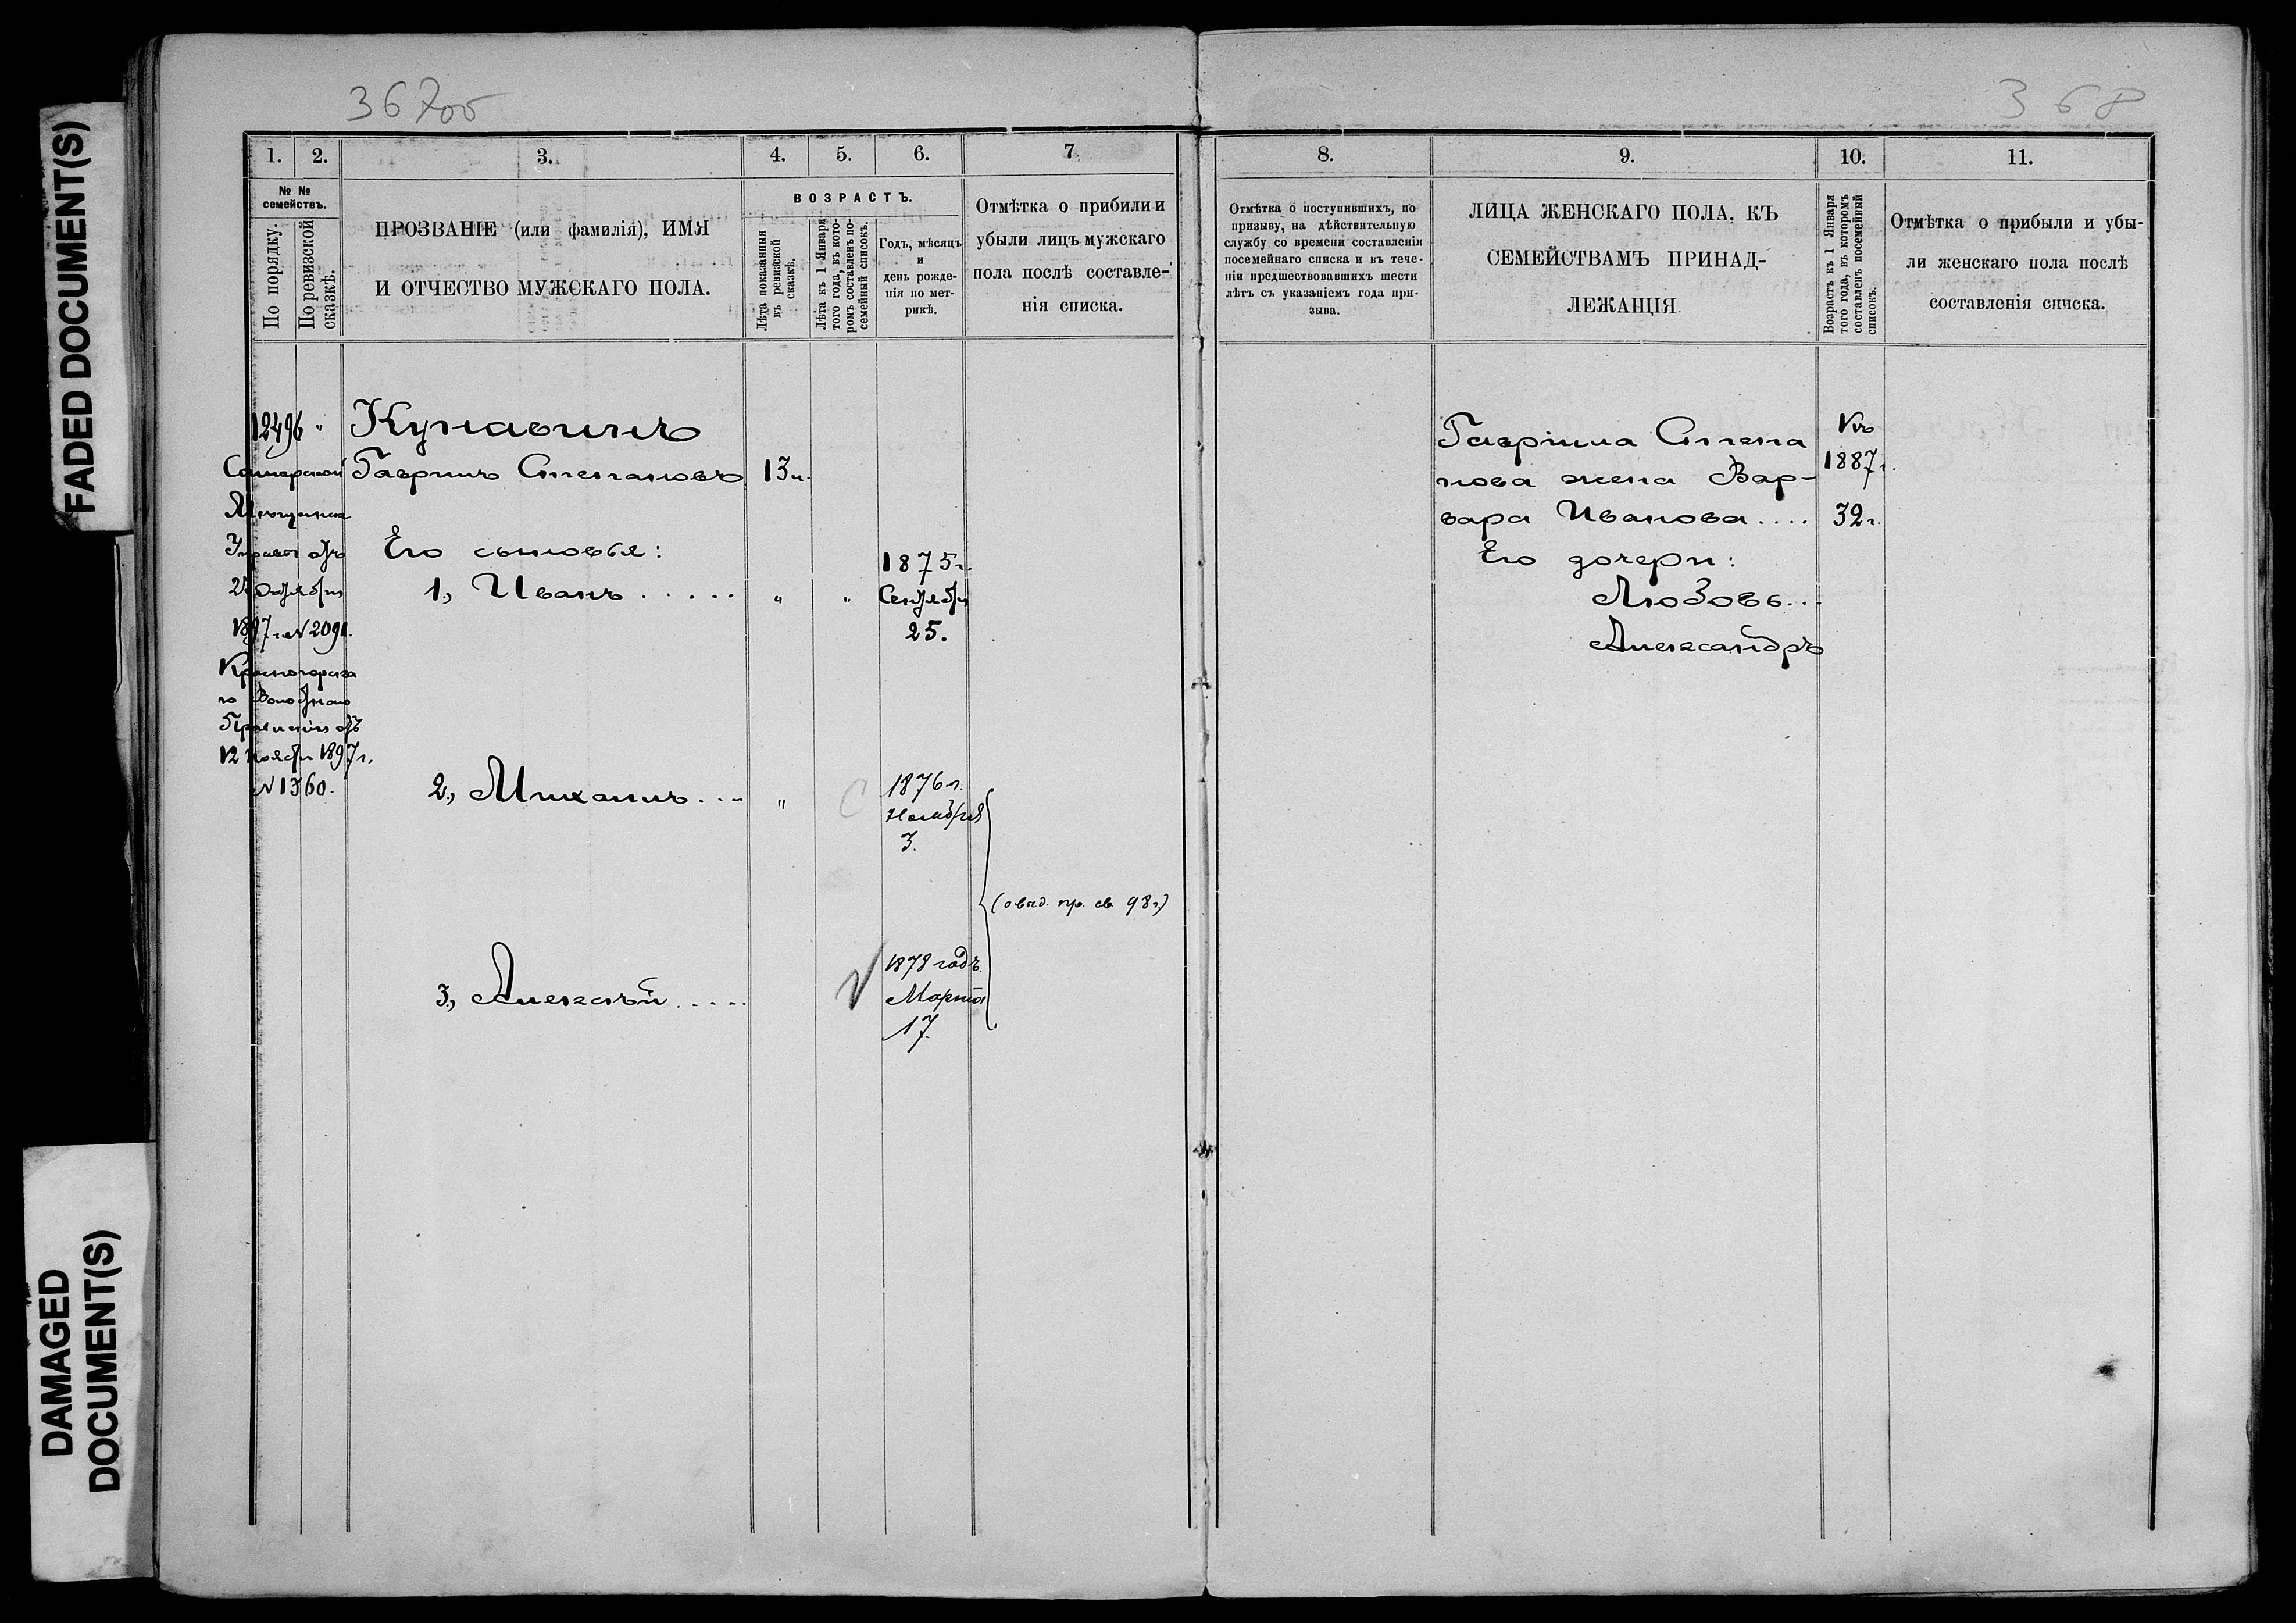 FADED DOCUMENT(S)
DAMAGED
DOCUMENT(S)
367об
1. 2. 3. 4. 5. 6. 7.
№ №
семействъ.
По порядку.
По ревизской
сказкѣ.
ПРОЗВАНІЕ (или фамилія), ИМЯ
И ОТЧЕСТВО МУЖСКАГО ПОЛА.
ВОЗРАСТЪ.
Лѣта показанныя
въ ревизской
сказкѣ.
Лѣта къ 1 Января
того года, въ кото-
ромъ составленъ по-
семейный списокъ.
Годъ, мѣсяцъ
и
день рожде-
нія по мет-
рикѣ.
Отмѣтка о прибыли и
убыли лицъ мужскаго
пола послѣ составле-
нія списка.
12496 "
Самарской
Мѣщанск
Управы отъ
Октября
1897 г. № 2091.
Красногорска
го Волостнаго
Правленія отъ
12 Ноября 1897 г.
№ 1360.
Кунавинъ
Гаврилъ Степановъ 13 н.
Его сыновья:
1., Иванъ ..... " "
1875 г.
Сентября
25.
2., Михаилъ... "
1876 г.
Ноября
3.
(свид. пр. св. 98 г.)
3., Алексѣй .....
1878 годъ.
Марта
17.
368
8. 9. 10. 11.
Отмѣтка о поступившихъ, по
призыву, на дѣйствительную
службу со времени составленія
посемейнаго списка и въ тече-
ніи предшествовавшихъ шести
лѣтъ съ указаніемъ года при-
зыва.
ЛИЦА ЖЕНСКАГО ПОЛА, КЪ
СЕМЕЙСТВАМЪ ПРИНАД-
ЛЕЖАЩІЯ
Возрастъ къ 1 Января
того года, въ которомъ
составленъ посемейный
списокъ.
Отмѣтка о прибыли и убы-
ли женскаго пола послѣ
составленія списка.
Гавріила Степа
нова жена Вар-
вара Иванова....
Къ
1887 г.
32 г.
Его дочери:
Любовь...
Александръ